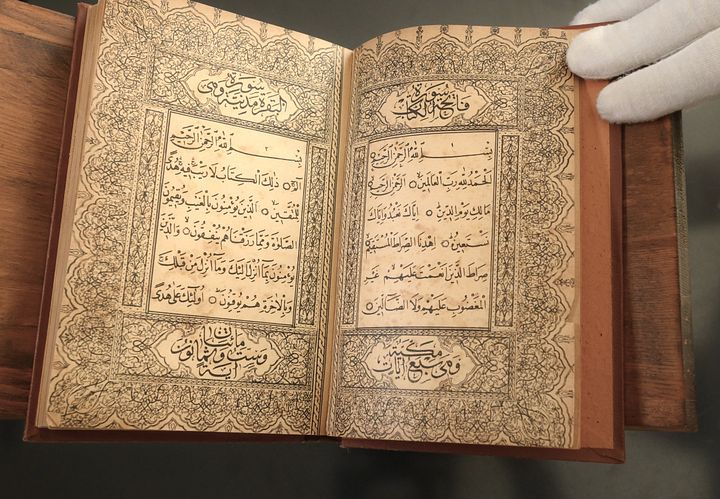 سورة
فاتحة الكتاب
١
بسم الله الرحمن الرحيم
الحمد لله رب العالمين الرحمن الرحيم
مالك يوم الدين اياك نعبد واياك
نستعين اهدنا الصراط المستقيم
صراط الذين انعمت عليهم غير
المغضوب عليهم ولا الضالين
وهي سبع آيات
مكية
سورة
البقرة مدنية وهي
٢
بسم الله الرحمن الرحيم
الم ذلك الكتاب لا ريب فيه هدى
للمتقين الذين يؤمنون بالغيب ويقيمون
الصلاة ومما رزقناهم ينفقون والذين
يؤمنون بما انزل اليك وما انزل من قبلك
وبالآخرة هم يوقنون اولئك على هدى
مائتان
وست وثمانون
آية